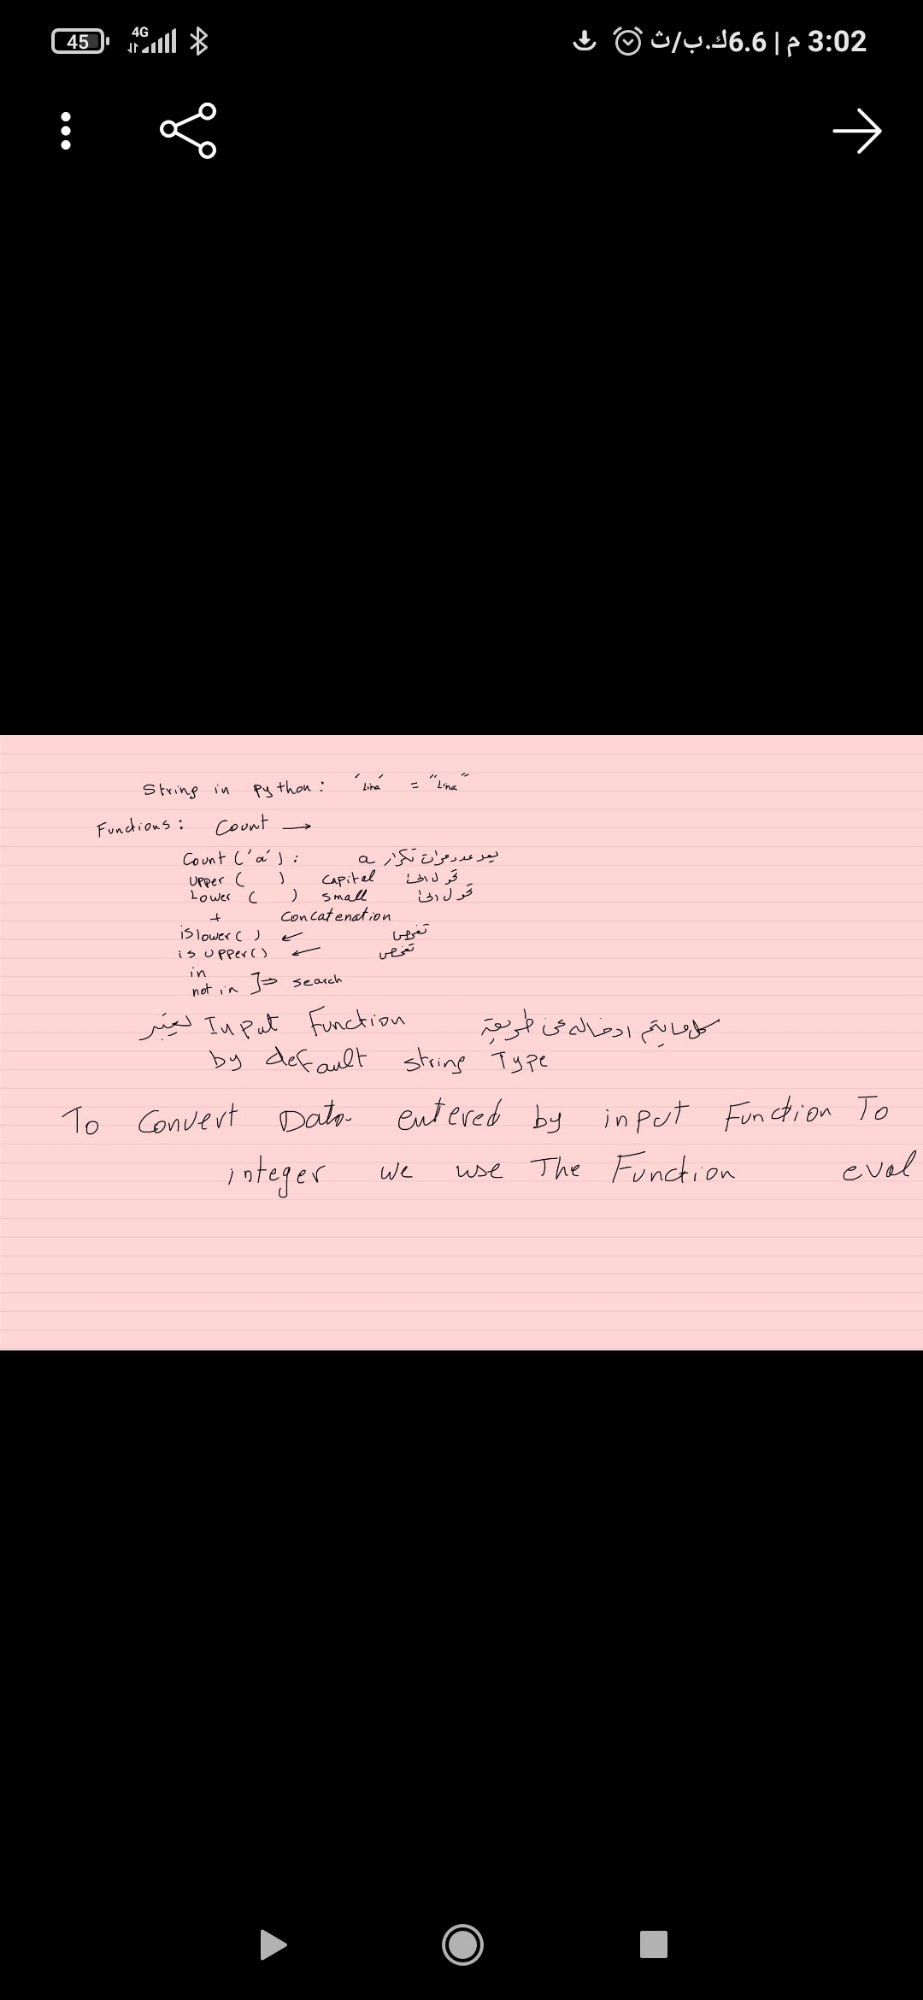 45 4G 6.6ك.ب/ث | 3:02 م
String in Python: 'Lina' = "Lina"
Functions: Count →
Count ('a'): يعد عدد مرات تكرار a
Upper ( ) capital تحول الى
Lower ( ) small تحول الى
+ Concatenation
islower() ← تفحص
is upper() ← تفحص
in
not in ]⇒ search
كل ما يتم ادخاله عن طريقة Input Function يعتبر
by default string Type
To Convert Data entered by input Function To
integer we use The Function eval